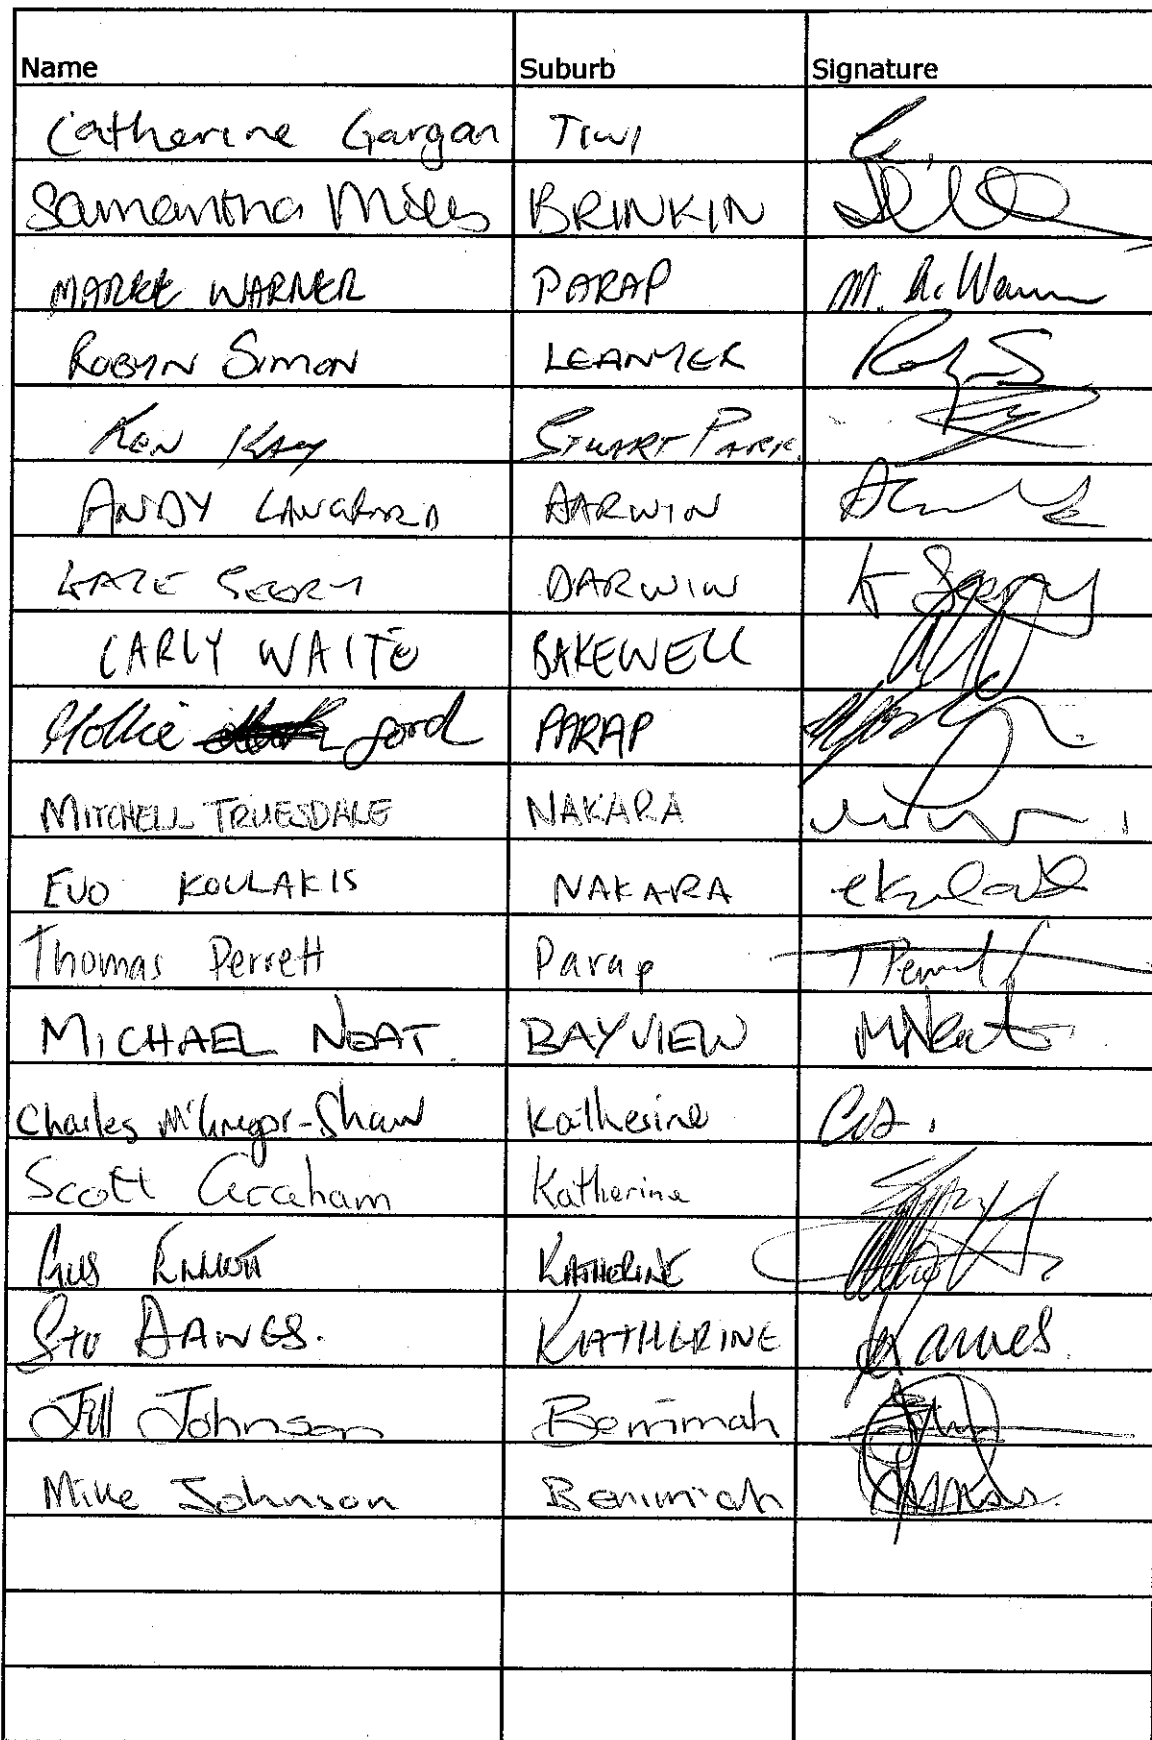 Name Suburb Signature
Catherine Gargan TIWI
Samantha Mills BRINKIN
WARNER PARAP M. R. Warner
ROBYN SIMON LEANYER
KEN KAY STUART PARK
ANDY LANGFORD DARWIN
KATE SEERY DARWIN K Seery
CARLY WAITE BAKEWELL
Hollie ford PARAP
MITCHELL TRUESDALE NAKARA
EVO KOULAKIS NAKARA
Thomas Perrett Parap T Perrett
MICHAEL NEAT. BAYVIEW MNeat
Charles McGregor-Shaw Katherine
Scott Graham Katherine
Gus KATHERINE
Stu DAWES. KATHERINE
Jill Johnson Berrimah
Mike Johnson Berrimah